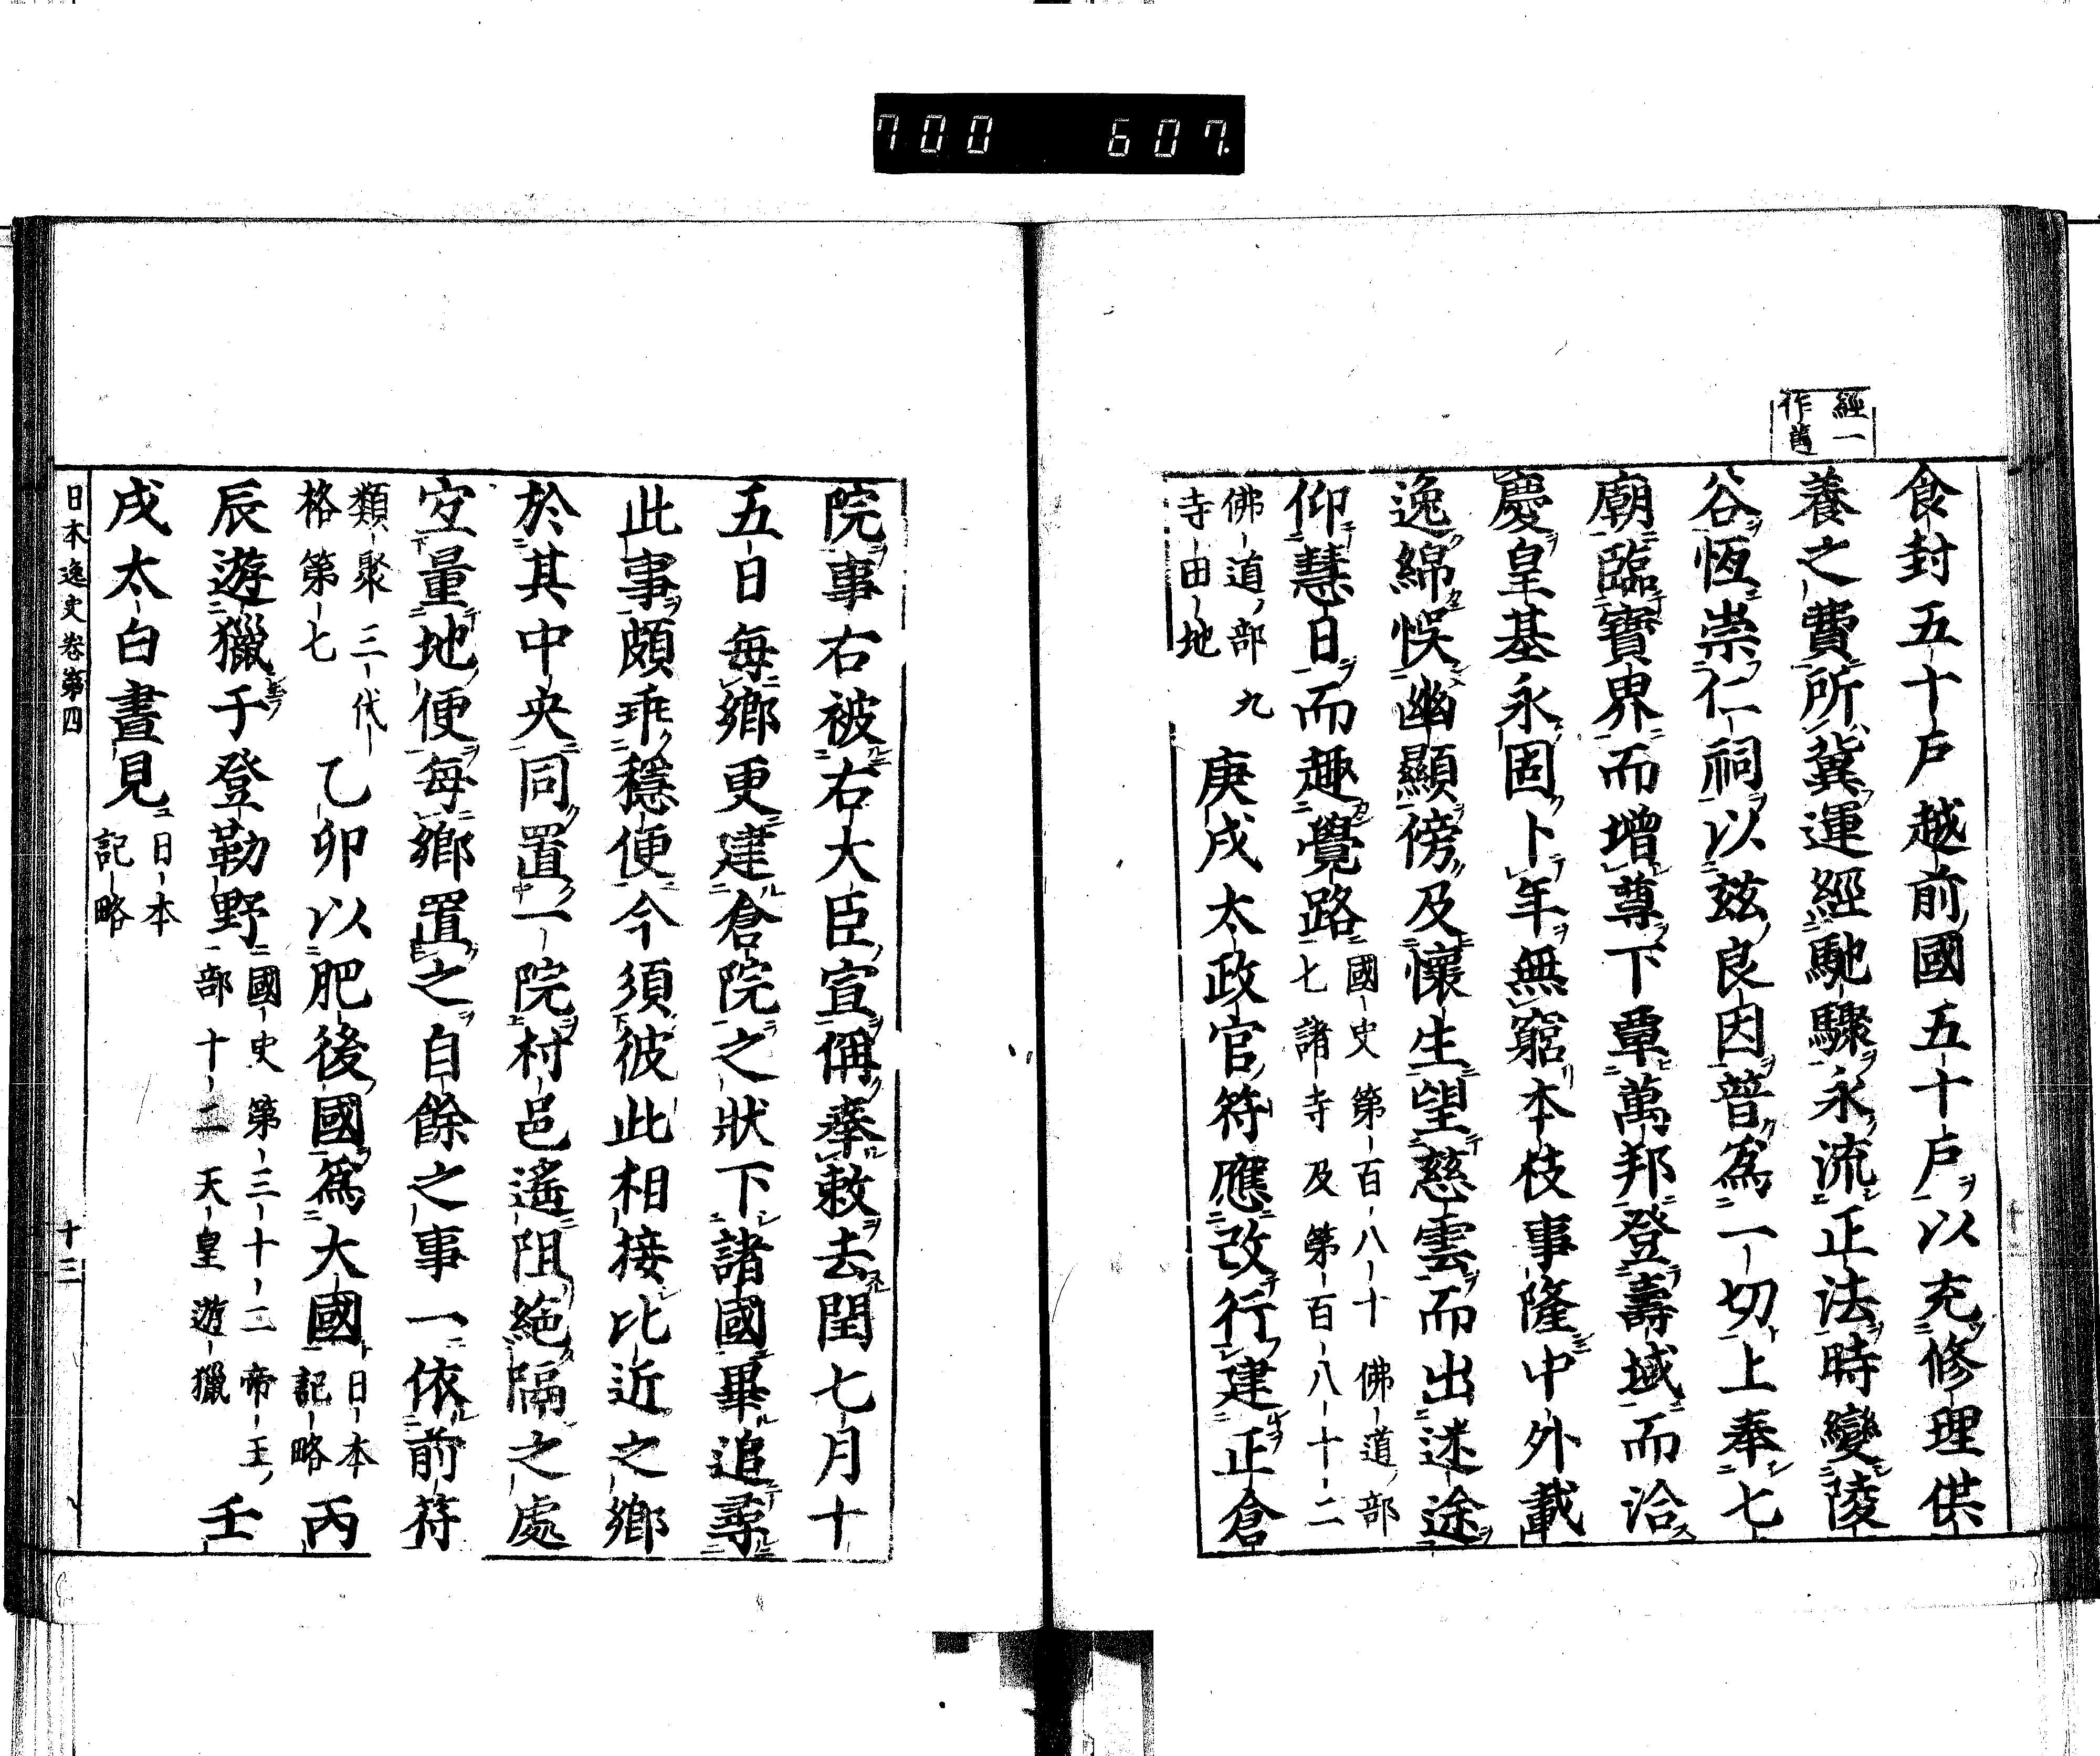 700 607.
經一
作舊
食封五十戸越前國五十戸以充修理供
養之費所冀運經馳驟永流正法時變陵
谷恆崇仁祠以兹良因普爲一切上奉七
廟臨寶界而增尊下覃萬邦登壽域而洽
慶皇基永固卜年無窮本枝事隆中外載
逸綿悞幽顯傍及懷生望慈雲而出迷途
仰慧日而趣覺路
國史第百八十佛道部
七諸寺及第百八十二
佛道部九
寺田地
庚戌太政官符應改行建正倉
院事右被右大臣宣偁奉敕去閏七月十
五日毎鄉更建倉院之狀下諸國畢追尋
此事頗乖穩便今須彼此相接比近之鄉
於其中央同置一院村邑遙阻絶隔之處
宐量地便毎鄉置之自餘之事一依前符
類聚三代
格第七
乙卯以肥後國爲大國
日本
記略
丙
辰遊獵于登勒野
國史第三十二帝王
部十二天皇遊獵
壬
戌太白晝見
日本
記略
日本逸史卷第四
十三